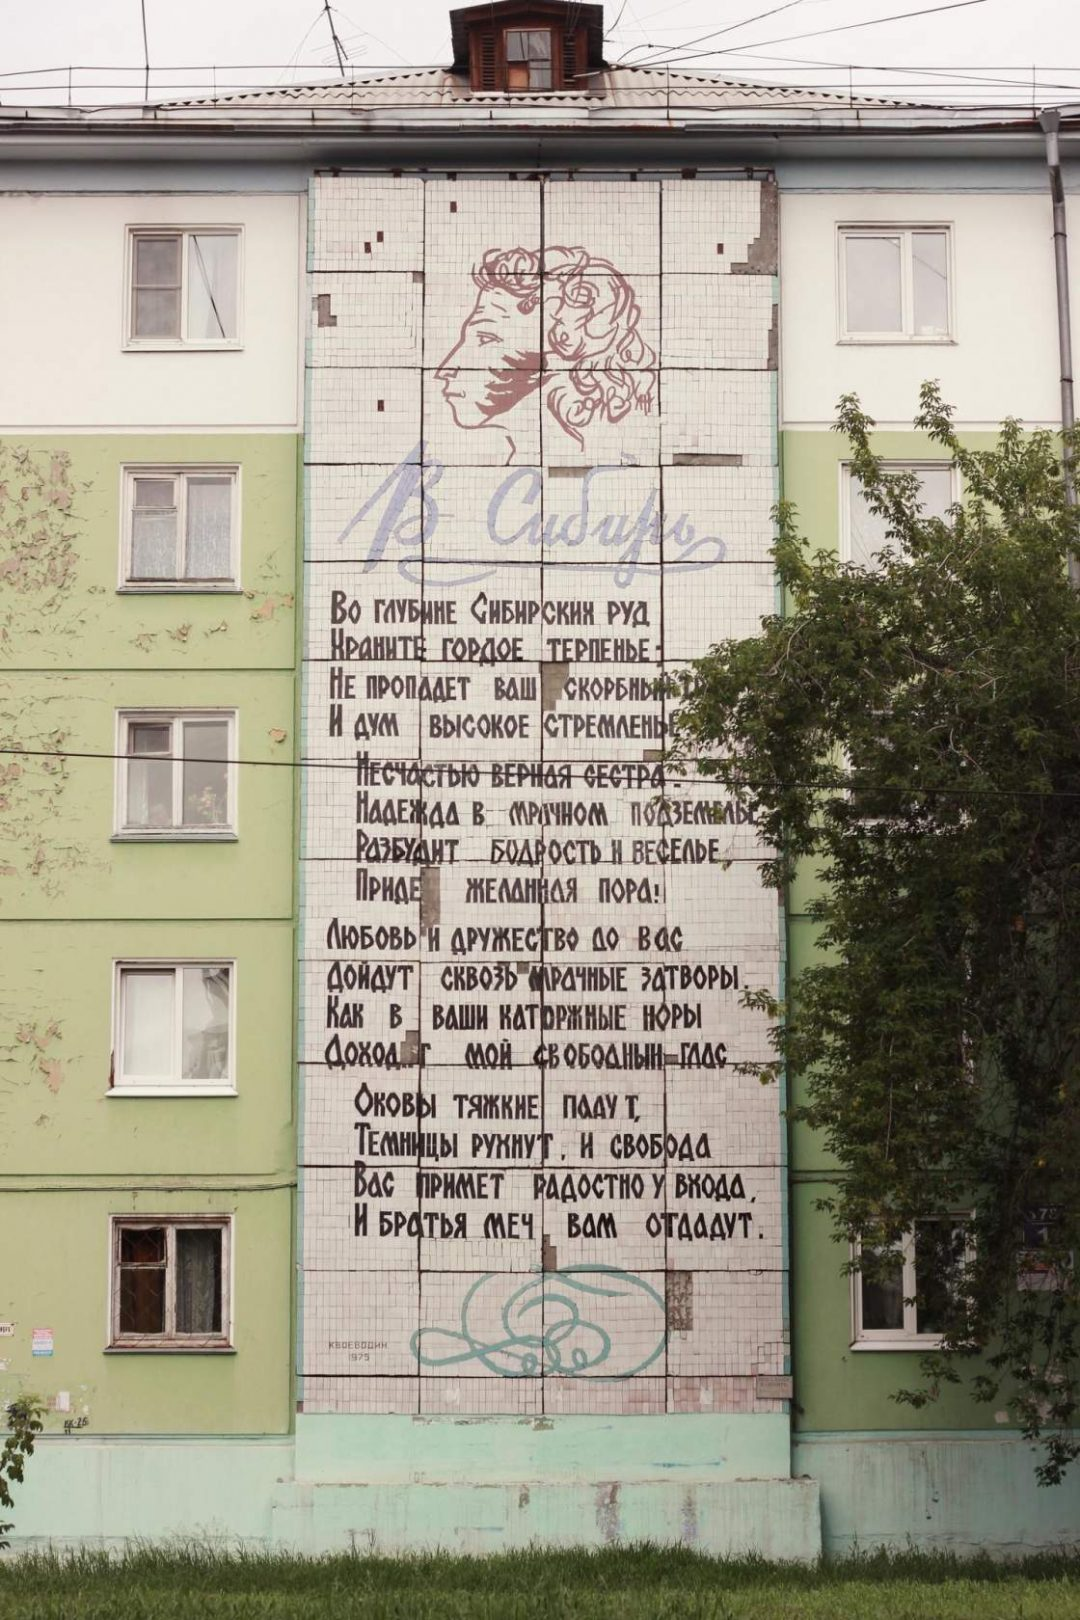 В Сибирь
Во глубине Сибирских руд
Храните гордое терпенье
Не пропадет ваш скорбный
И дум высокое стремленье
Несчастью верная сестра
Надежда в мрачном подземелье
Разбудит бодрость и веселье,
Приде желанная пора:
Любовь и дружество до вас
Дойдут сквозь мрачные затворы.
Как в ваши каторжные норы
Доход..т мой свободный глас
Оковы тяжкие падут,
Темницы рухнут, и свобода
Вас примет радостно у входа,
И братья меч вам отдадут.
КВОЕВОДИН
1975